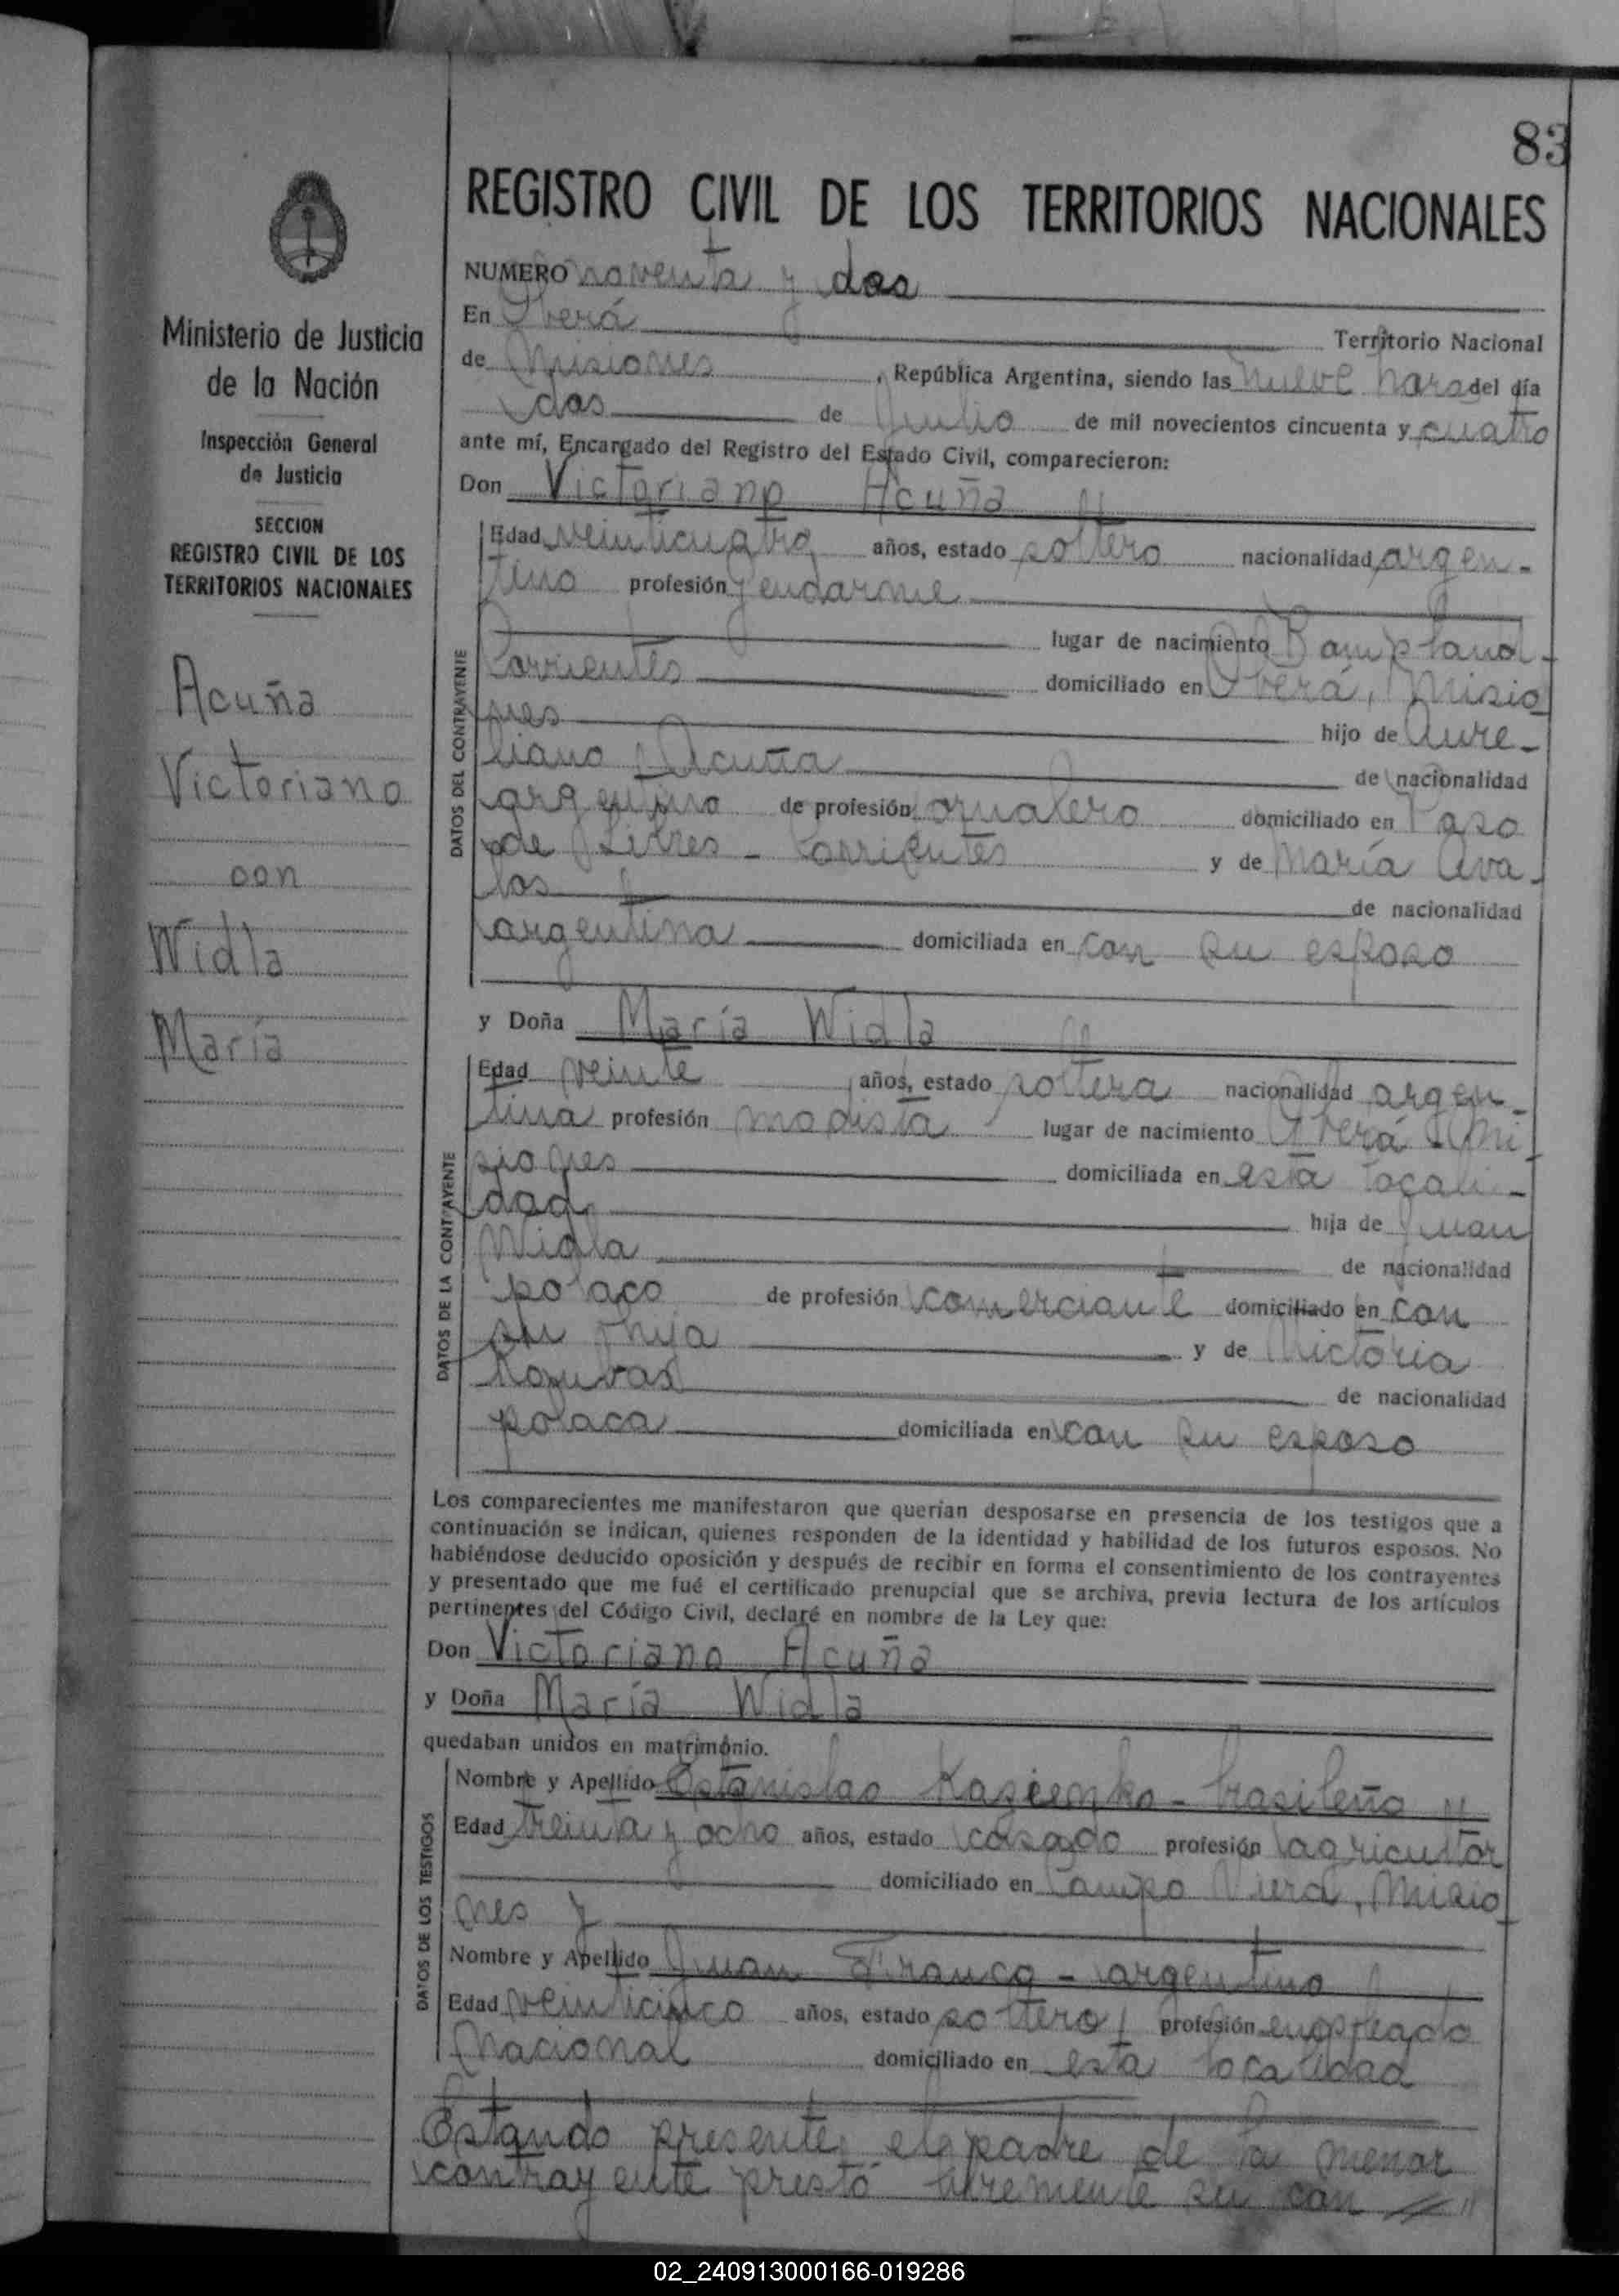 83
REGISTRO CIVIL DE LOS TERRITORIOS NACIONALES
Ministerio de Justicia
de la Nación
Inspección General
de Justicia
SECCION
REGISTRO CIVIL DE LOS
TERRITORIOS NACIONALES
Acuña
Victoriano
con
Widla
María
NUMERO noventa y dos
En Oberá Territorio Nacional
de Misiones, República Argentina, siendo las nueve horas del día
dos de Julio de mil novecientos cincuenta y cuatro
ante mí, Encargado del Registro del Estado Civil, comparecieron:
Don Victoriano Acuña
DATOS DEL CONTRAYENTE
Edad veinticuatro años, estado soltero nacionalidad argen-
tino profesión gendarme
lugar de nacimiento Bompland-
Corrientes domiciliado en Oberá, Misio
nes hijo de Aure-
liano Acuña de nacionalidad
argentino de profesión jornalero domiciliado en Paso
de Libres - Corrientes y de María Ava-
los de nacionalidad
argentina domiciliada en con su esposo
y Doña María Widla
DATOS DE LA CONTRAYENTE
Edad veinte años, estado soltera nacionalidad argen-
tina profesión modista lugar de nacimiento Oberá - Mi
siones domiciliada en esta locali-
dad hija de Juan
Widla de nacionalidad
polaco de profesión comerciante domiciliado en con
su hija y de Victoria
de nacionalidad
polaca domiciliada en con su esposo
Los comparecientes me manifestaron que querían desposarse en presencia de los testigos que a
continuación se indican, quienes responden de la identidad y habilidad de los futuros esposos. No
habiéndose deducido oposición y después de recibir en forma el consentimiento de los contrayentes
y presentado que me fué el certificado prenupcial que se archiva, previa lectura de los artículos
pertinentes del Código Civil, declaré en nombre de la Ley que:
Don Victoriano Acuña
y Doña María Widla
quedaban unidos en matrimonio.
DATOS DE LOS TESTIGOS
Nombre y Apellido Estanislao - brasileño
Edad treinta y ocho años, estado casado profesión agricultor
domiciliado en Campo Viera, Misio
nes y
Nombre y Apellido Juan Franco - argentino
Edad veinticinco años, estado soltero profesión empleado
Nacional domiciliado en esta localidad
Estando presente el padre de la menor
contrayente prestó libremente su con
02_240913000166-019286